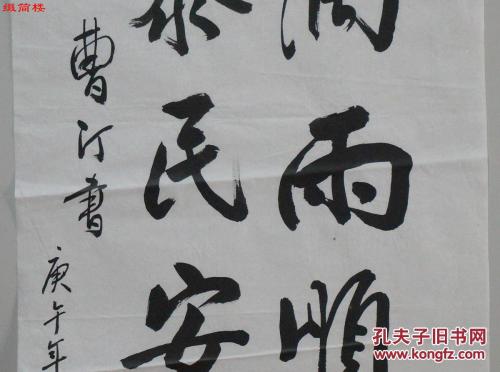 調雨順
泰民安
曹汀書
庚午年
缀简楼
孔夫子旧书网
www.kongfz.com